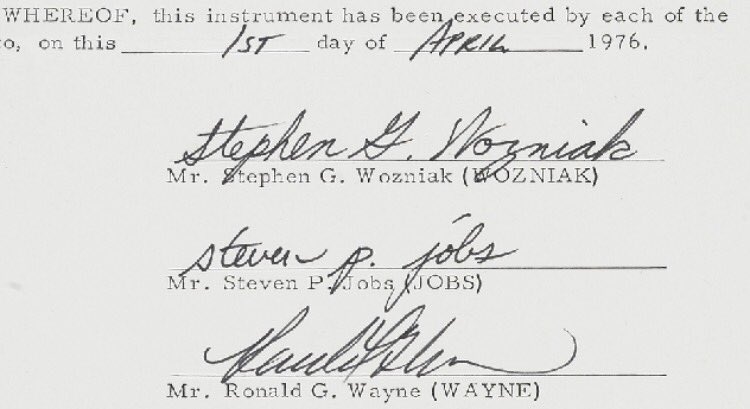 WHEREOF, this instrument has been executed by each of the
o, on this 1ST day of APRIL 1976.
Stephen G. Wozniak
Mr. Stephen G. Wozniak (WOZNIAK)
steven p. jobs
Mr. Steven P. Jobs (JOBS)
Mr. Ronald G. Wayne (WAYNE)